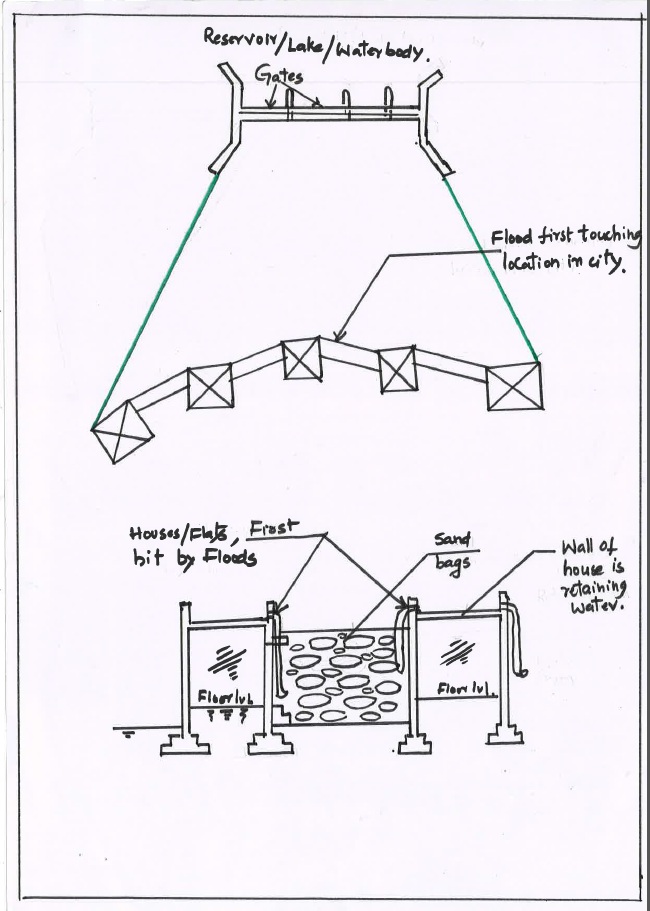 Reservoir/Lake/Waterbody.
Gates
Flood first touching
location in city.
Houses/Flats, First
hit by Floods
Sand
bags
Wall of
house is
retaining
water.
Floor lvl.
Floor lvl.